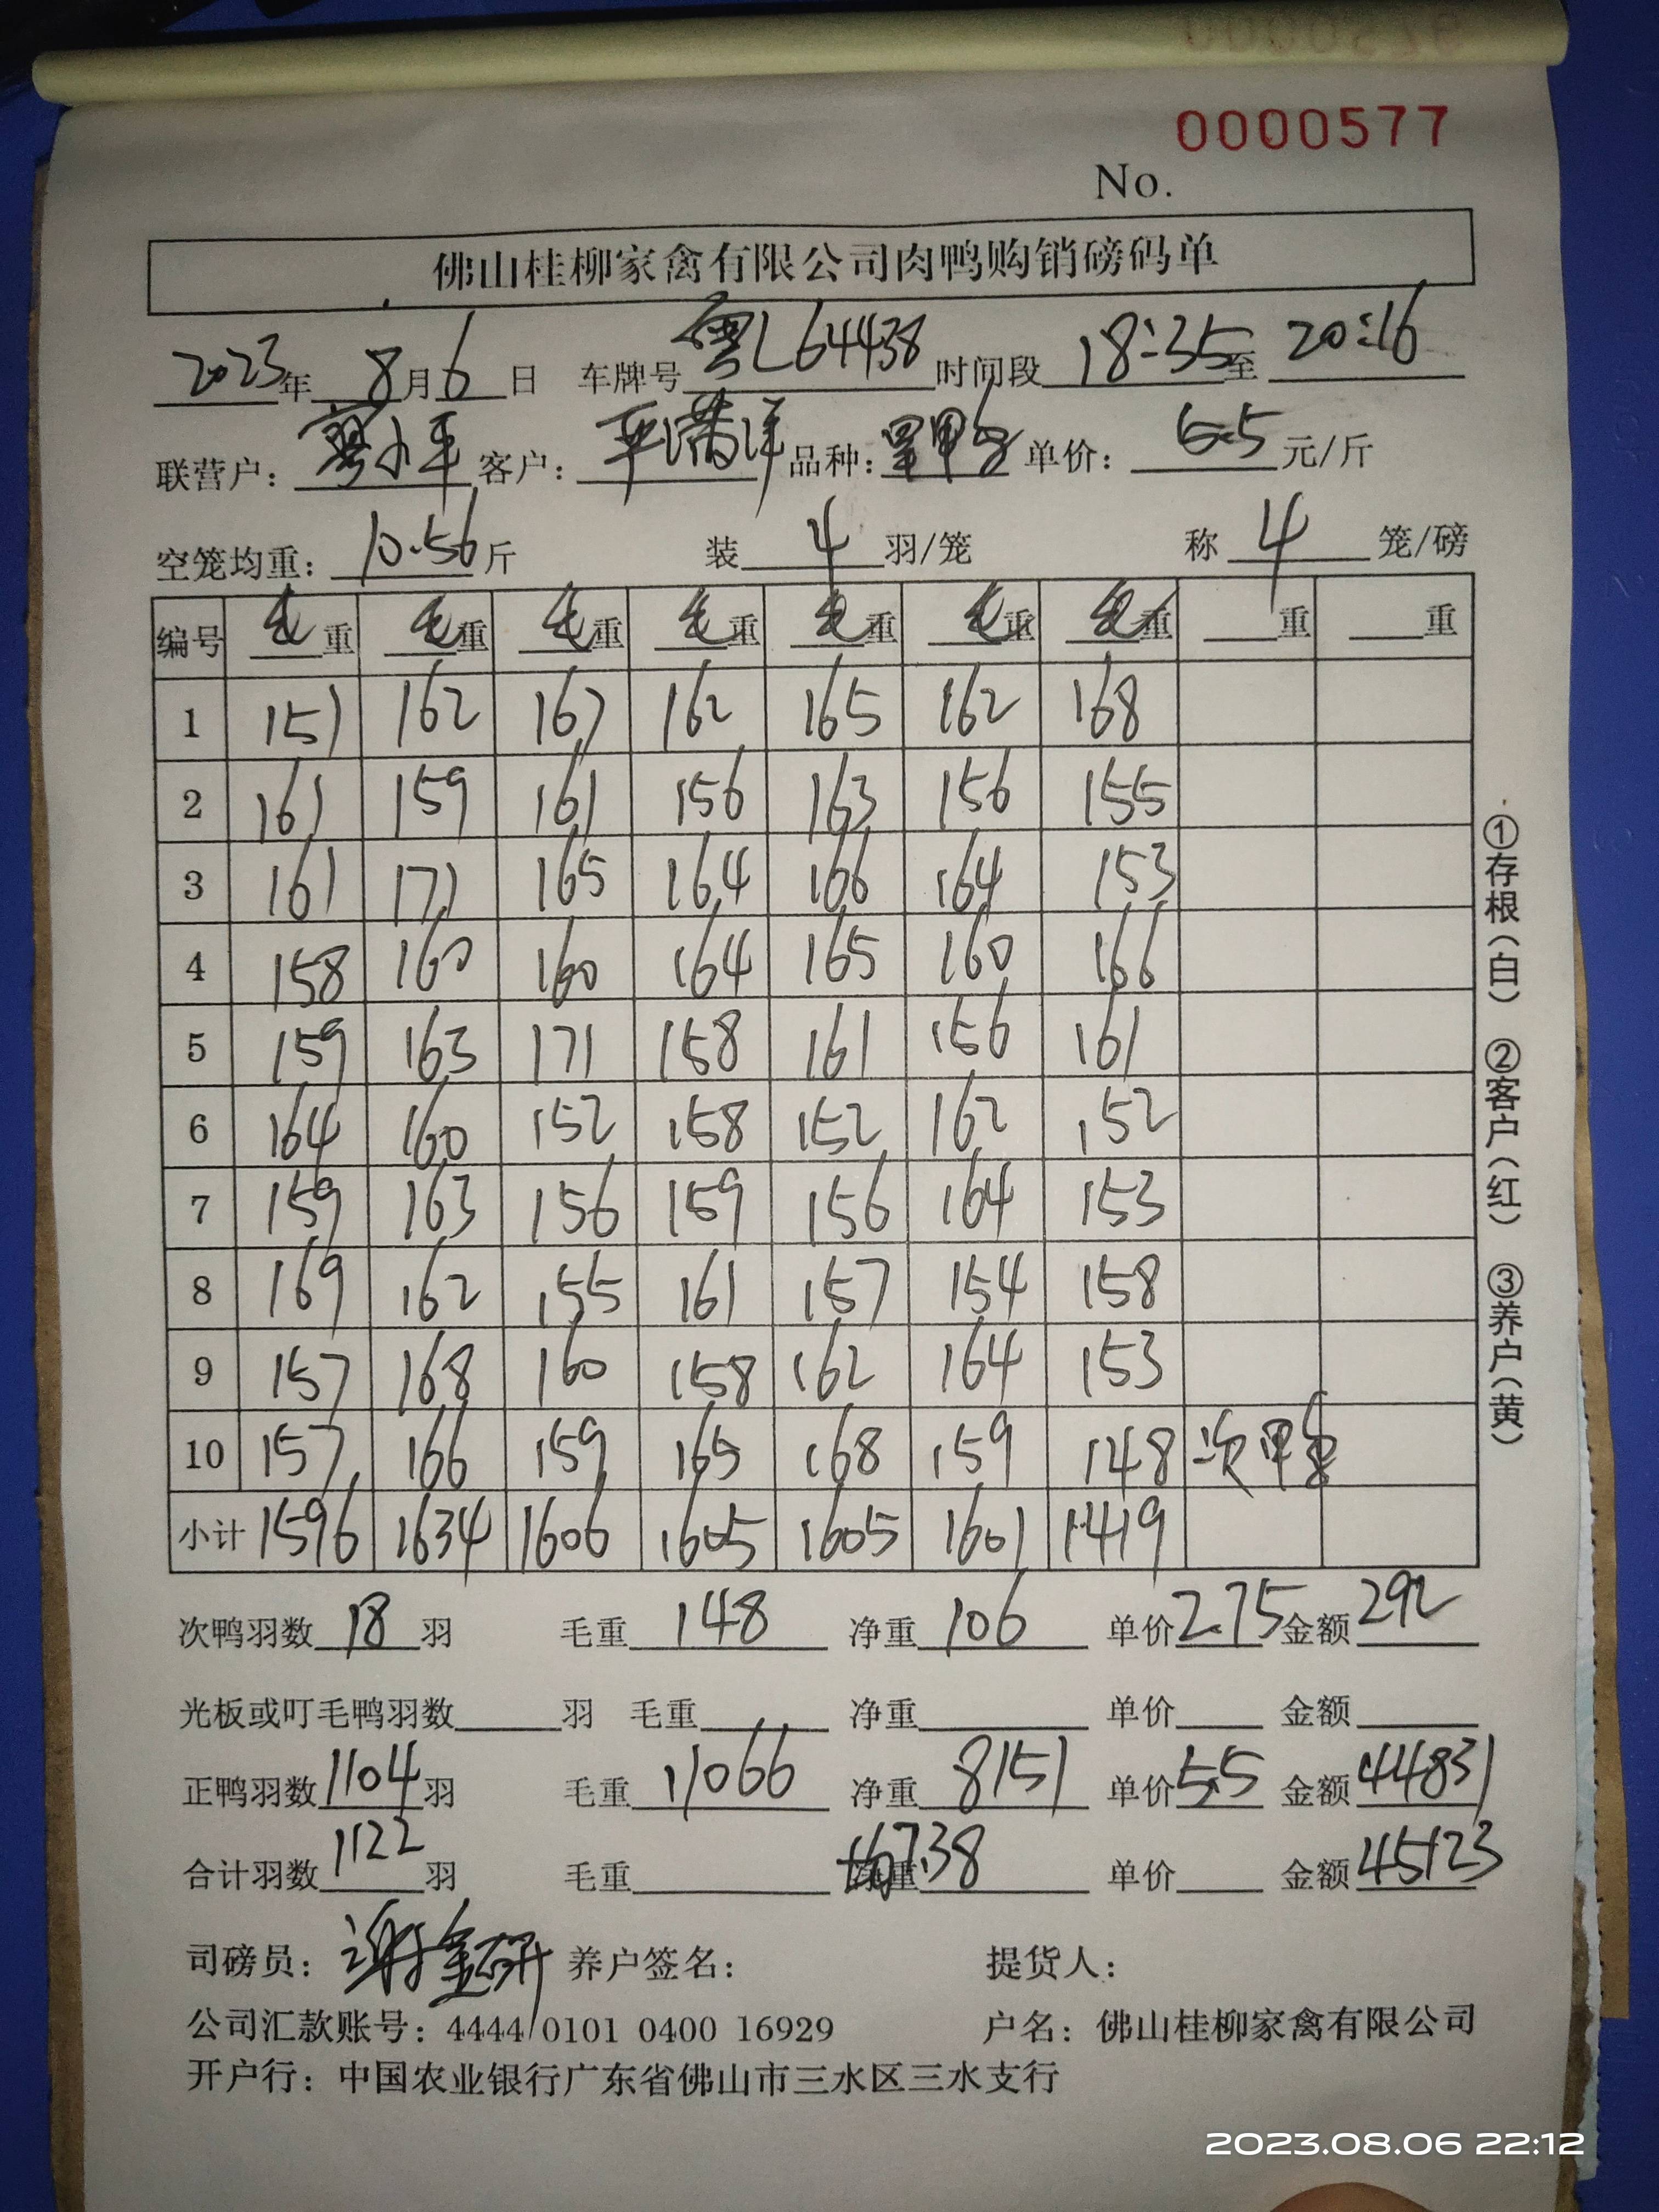 0000577
No.
佛山桂柳家禽有限公司肉鸭购销磅码单
2023年 8月6日 车牌号 粤L64438 时间段 18:35至 20:16
联营户: 廖小平 客户: 品种: 单价: 6.5 元/斤
空笼均重: 10.56斤 装 4 羽/笼 称 4 笼/磅
编号 毛重 毛重 毛重 毛重 毛重 毛重 毛重 重 重
1 151 162 167 162 165 162 168
2 161 159 161 156 163 156 155
3 161 171 165 164 166 164 153
4 158 160 160 164 165 160 166
5 159 163 171 158 161 156 161
6 164 160 152 158 152 162 152
7 159 163 156 159 156 164 153
8 169 162 155 161 157 154 158
9 157 168 160 158 162 164 153
10 157 166 159 165 168 159 148 次鸭
小计 1596 1634 1606 1605 1605 1601 1419
次鸭羽数 18 羽 毛重 148 净重 106 单价 2.75 金额 292
光板或叮毛鸭羽数 羽 毛重 净重 单价 金额
正鸭羽数 1104 羽 毛重 11066 净重 8151 单价 5.5 金额 44831
合计羽数 1122 羽 毛重 净重 7.38 单价 金额 45123
司磅员: 谢金研 养户签名: 提货人:
公司汇款账号: 4444 0101 0400 16929 户名: 佛山桂柳家禽有限公司
开户行: 中国农业银行广东省佛山市三水区三水支行
①存根(白) ②客户(红) ③养户(黄)
2023.08.06 22:12